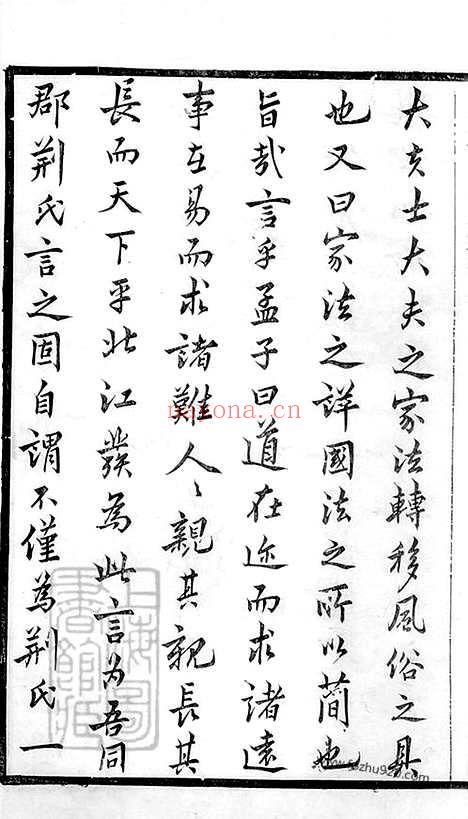 大夫士大夫之家法轉移風俗之具
也又曰家法之詳國法之所以簡也
旨哉言乎孟子曰道在迩而求諸遠
事在易而求諸難人〻親其親長其
長而天下平北江發為此言为吾同
郡荆氏言之固自謂不僅為荆氏一
nayona.cn
www.fozhu920.com